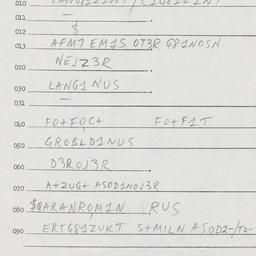 010
011
012 $
013 AFM7 EM1S OT3R G81NOSN
020 NEJZ3R
030 LANG1NUS
031
040 FO+FOC+ FO+F1T
050 GROBLD1NUS
060 D3ROJ3R
070 A+ZUG+ ASOD1NOJ3R
080 $QARANROM1N RUS
090 ERTG81ZUKT S+MILN ASOD2-/T2-